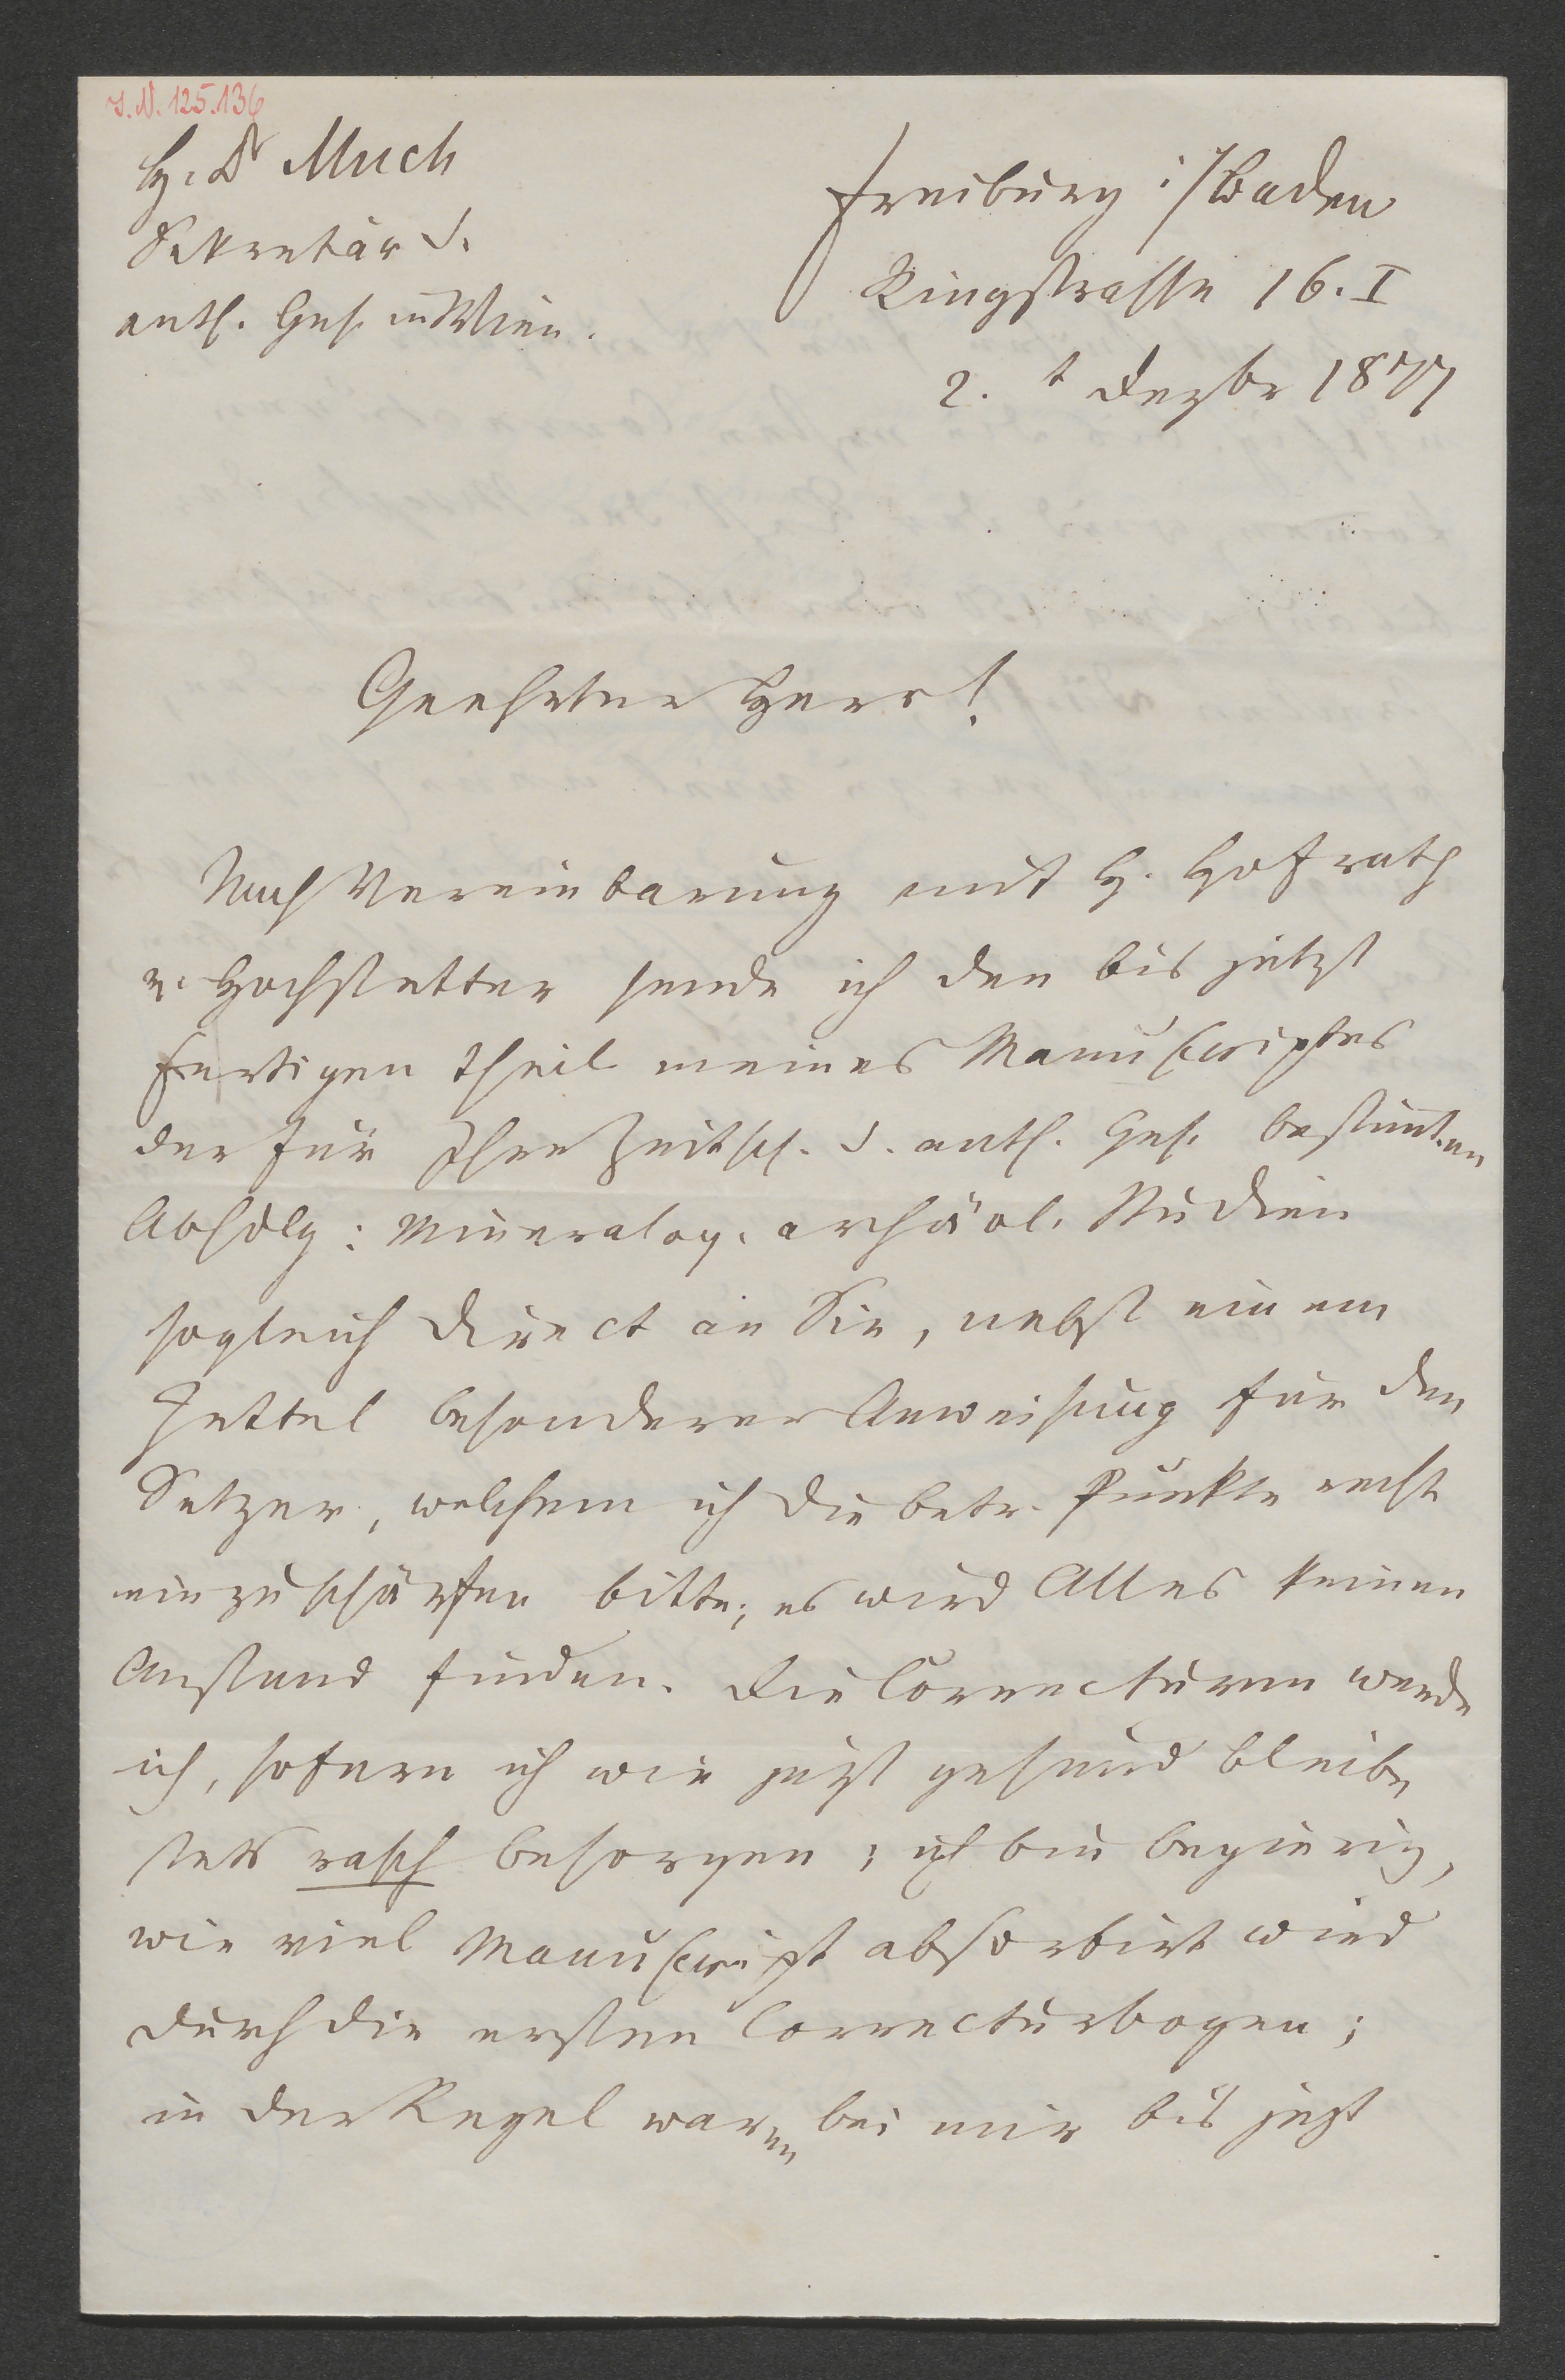 I.N. 125.136
H. Dr Much
Sekretär d.
anth. Ges. in Wien.
Freiburg i/Baden
Ringstrasse 16. I
2. t Dezbr 1877
Geehrter Herr!
Nach Vereinbarung mit H. Hofrath
v. Hochstetter sende ich den bis jetzt
fertigen Theil meines Manuscriptes
der für Ihre Zeitsch. d. anth. Ges. bestimten
Abhdlg: Mineralog. archäol. Studien
sogleich direct an Sie, nebst einem
Zettel besonderer Anweisung für den
Setzer, welchem ich die betr. Punkte recht
einzuschärfen bitte; es wird Alles keinen
Anstand finden. Die Correcturen werde
ich, sofern ich wie jezt gesund bleibe
stets rasch besorgen; ich bin begierig,
wie viel Manuscript absorbirt wird
durch die ersten Correcturbogen;
in der Regel waren bei mir bis jezt